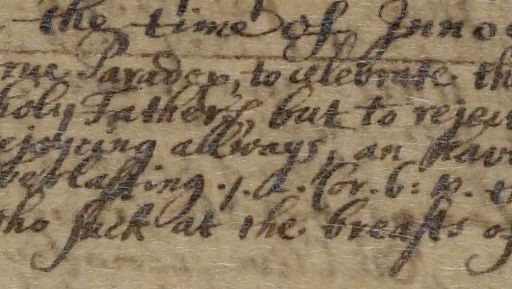 the time of Inno
rue Paradox, to celebrate th
holy Fathers but to rejec
ejoycing allways, an hav
verlasting. 1. 2. Cor. 6: p. t
ho suck at the breasts of